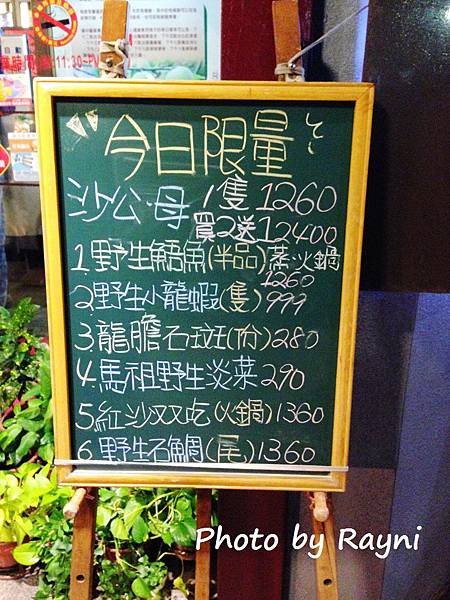 11:30~PM
今日限量
沙公.母 1隻 1260
買2送1 2400
1.野生鮕魚(半品)蒸火鍋
1260
2.野生小龍蝦(隻) 999
3.龍膽石斑(份)280
4.馬祖野生淡菜290
5.紅沙又又吃(火鍋)1360
6.野生石鯛(尾)1360
Photo by Rayni